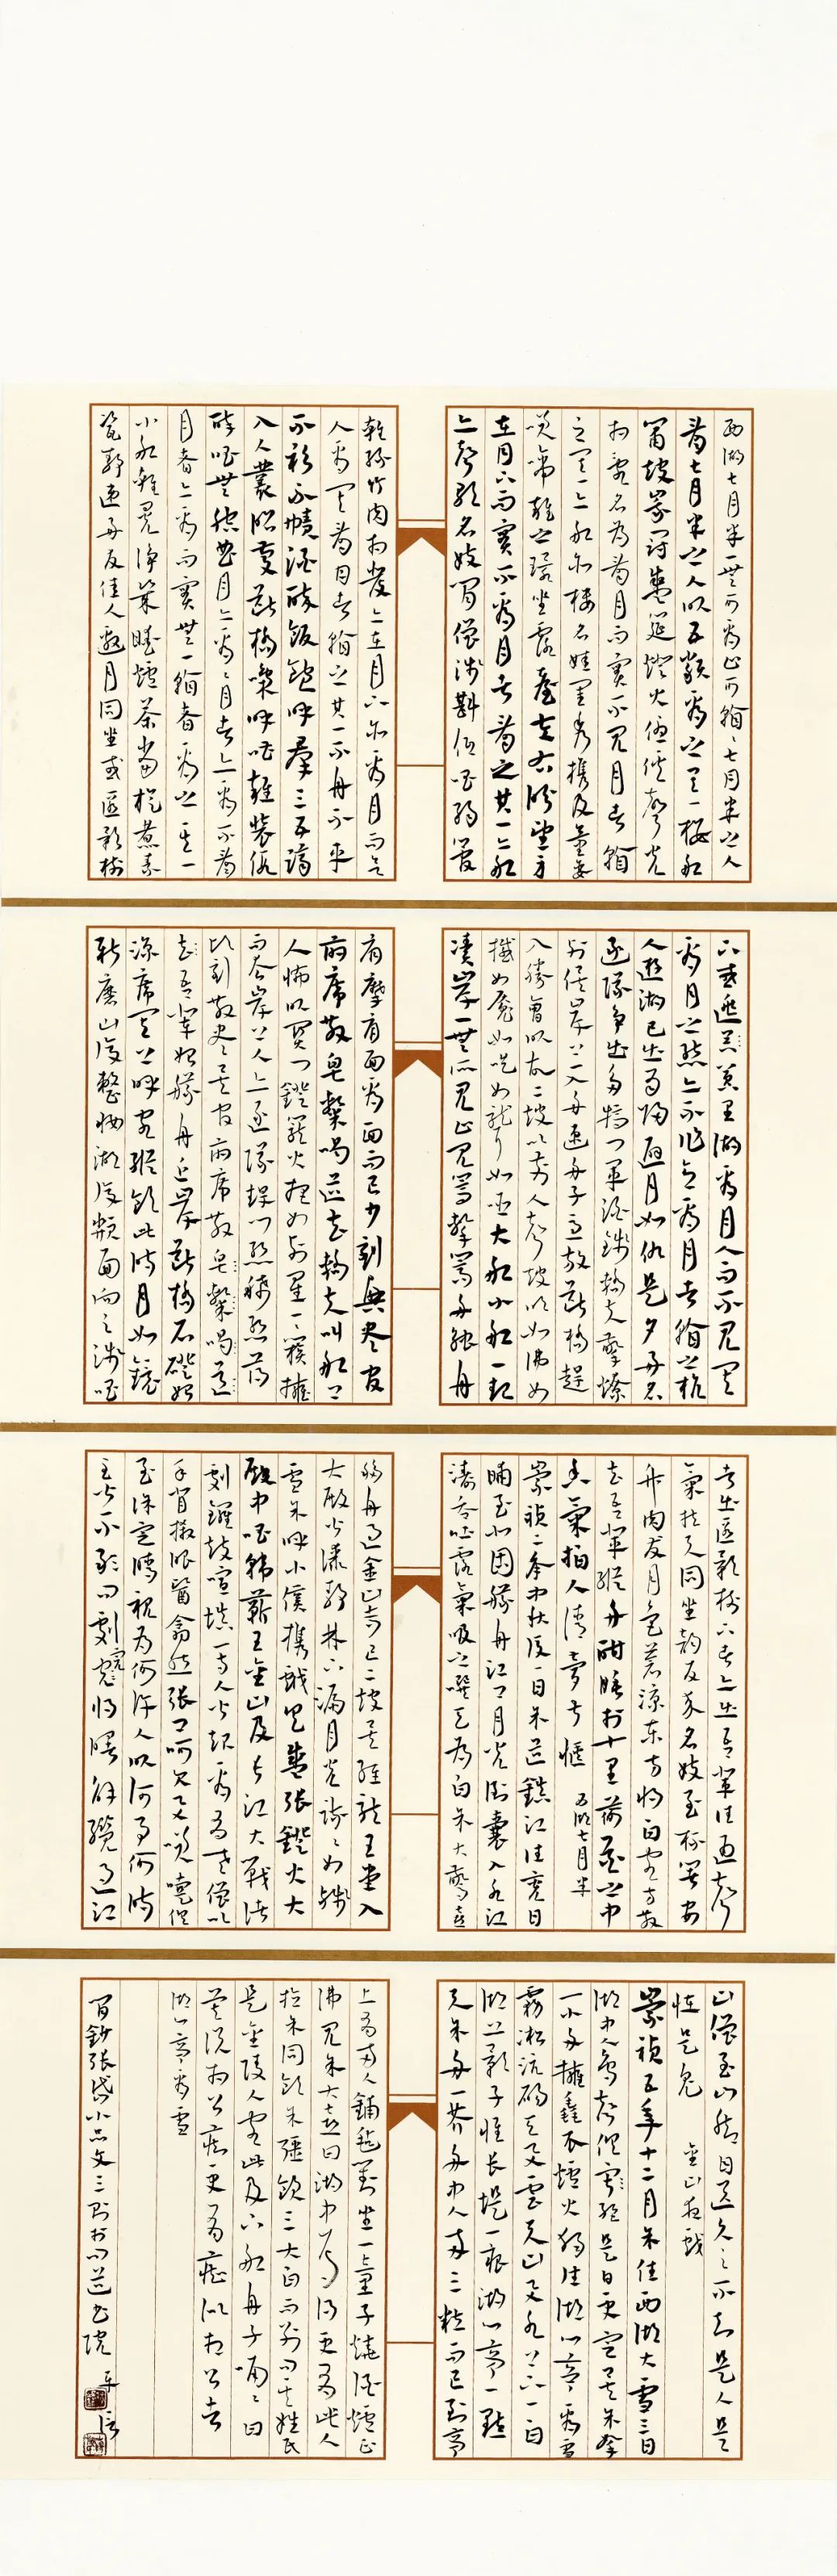 西湖七月半一無可看止可看看七月半之人
看七月半之人以五類看之其一樓船
簫鼓峨冠盛筵燈火優傒聲光
相亂名為看月而實不見月者看
之其一亦船亦樓名娃閨秀攜及童孌
笑啼雜之環坐露臺左右盼望身
在月下而實不看月者看之其一亦船
亦聲歌名妓閒僧淺斟低唱弱管
輕絲竹肉相發亦在月下亦看月而欲
人看其看月者看之其一不舟不車
不衫不幘酒醉飯飽呼群三五躋
入人叢昭慶斷橋嘄呼嘈雜裝假
醉唱無腔曲月亦看看月者亦看不看
月者亦看而實無一看者看之其一
小船輕幌淨几暖爐茶鐺旋煮素
瓷靜遞好友佳人邀月同坐或匿影樹
下或逃囂裏湖看月人而不見其
看月之態亦不作意看月者看之杭
人遊湖巳出酉歸避月如仇是夕好名
逐隊爭出多犒門軍酒錢轎夫擎燎
列俟岸上一入舟速舟子急放斷橋趕
入勝會以故二鼓以前人聲鼓吹如沸如
撼如魘如囈如聾如啞大船小船一齊
湊岸一無所見止見篙擊篙舟觸舟
肩摩肩面看面而已少刻興盡官
府席散皂隸喝道去轎夫叫船上
人怖以關門燈籠火把如列星一一簇擁
而去岸上人亦逐隊趕門漸稀漸薄
頃刻散盡矣官府席散皂隸喝道
去吾輩始艤舟近岸斷橋石磴始
涼席其上呼客縱飲此時月如鏡
新磨山復整妝湖復頮面向之淺唱
者出匿影樹下者亦出吾輩往通聲
氣拉與同坐韻友來名妓至杯箸安
竹肉發月色蒼涼東方將白客方散
去吾輩縱舟酣睡於十里荷花之中
香氣拍人清夢甚愜 西湖七月半
崇禎二年中秋後一日余道鎮江往兗日
晡至北固艤舟江口月光倒囊入水江
濤吞吐露氣吸之噀天為白余大驚喜
移舟過金山寺已二鼓矣經龍王堂入
大殿皆漆靜林下漏月光疏疏如殘
雪余呼小傒攜戲具盛張燈火大
殿中唱韓蘄王金山及長江大戰諸
劇鑼鼓喧填一寺人皆起看有老僧以
手背摋眼翳翕然張口呵欠與笑嚏俱
至徐定睛視為何許人以何事何時
至皆不敢問劇完將曙解纜過江
山僧至山腳目送久之不知是人是
怪是鬼 金山夜戲
崇禎五年十二月余住西湖大雪三日
湖中人鳥聲俱寂絕是日更定矣余拏
一小舟擁毳衣爐火獨往湖心亭看雪
霧淞沆碭天與雲與山與水上下一白
湖上影子惟長堤一痕湖心亭一點
與余舟一芥舟中人兩三粒而已到亭
上有兩人鋪氈對坐一童子燒酒爐正
沸見余大喜曰湖中焉得更有此人
拉余同飲余強飲三大白而別問其姓氏
是金陵人客此及下船舟子喃喃曰
莫說相公癡更有癡似相公者
湖心亭看雪
閒鈔張岱小品文三則於問道書院